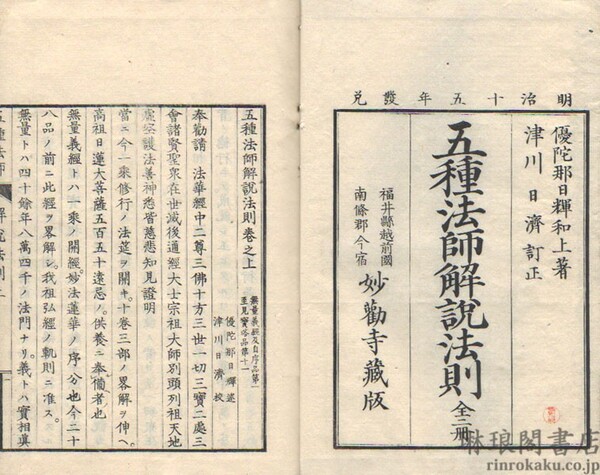 明治十五年發兌
優陀那日輝和上著
津川日濟訂正
五種法師解說法則 全二冊
福井縣越前國
南條郡今宿
妙勸寺藏版
五種法師解說法則卷之上
無量義經及自序品第一
至見寶塔品第十一
優陀那日輝述
津川日濟校
奉勸請法華經中二尊三佛十方三世一切三寶二處三
會諸賢聖衆在世滅後通經大士宗祖大師別頭列祖天地
虛空護法善神悉皆慈悲知見證明
當ニ今一來修行ノ法筵ヲ開キ十卷三部ノ畧解ヲ伸ヘ
高祖日蓮大菩薩五百五十遠忌ノ供養ニ奉備者也
無量義經トハ一乘ノ開經妙法蓮華ノ序分也今二十
八品ノ前ニ此經ヲ畧解シ我祖弘經ノ軌則ニ准ス
無量トハ四十餘年八萬四千ノ法門ナリ義トハ實相眞
五種法師 解說法則上
琳琅閣書店
rinrokaku.co.jp